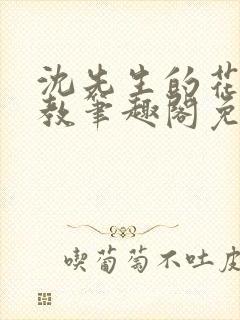 沈先生的花
教笔趣阁免
喫葡萄不吐皮